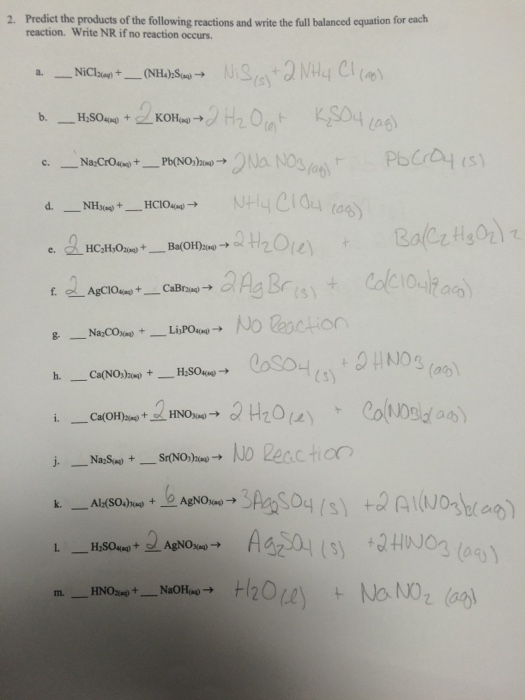 2. Predict the products of the following reactions and write the full balanced equation for each
reaction. Write NR if no reaction occurs.
a. __ NiCl₂(aq) + __ (NH₄)₂S(aq) → NiS(s) + 2 NH₄Cl(aq)
b. __ H₂SO₄(aq) + 2 KOH(aq) → 2 H₂O(l) + K₂SO₄(aq)
c. __ Na₂CrO₄(aq) + __ Pb(NO₃)₂(aq) → 2NaNO₃(aq) + PbCrO₄(s)
d. __ NH₃(aq) + __ HClO₄(aq) → NH₄ClO₄(aq)
e. 2 HC₂H₃O₂(aq) + __ Ba(OH)₂(aq) → 2H₂O(l) + Ba(C₂H₃O₂)₂
f. 2 AgClO₄(aq) + __ CaBr₂(aq) → 2AgBr(s) + Ca(ClO₄)₂(aq)
g. __ Na₂CO₃(aq) + __ Li₃PO₄(aq) → No Reaction
h. __ Ca(NO₃)₂(aq) + __ H₂SO₄(aq) → CaSO₄(s) + 2HNO₃(aq)
i. __ Ca(OH)₂(aq) + 2 HNO₃(aq) → 2 H₂O(l) + Ca(NO₃)₂(aq)
j. __ Na₂S(aq) + __ Sr(NO₃)₂(aq) → No Reaction
k. __ Al₂(SO₄)₃(aq) + 6 AgNO₃(aq) → 3Ag₂SO₄(s) + 2Al(NO₃)₃(aq)
l. __ H₂SO₄(aq) + 2 AgNO₃(aq) → Ag₂SO₄(s) + 2HNO₃(aq)
m. __ HNO₂(aq) + __ NaOH(aq) → H₂O(l) + NaNO₂(aq)